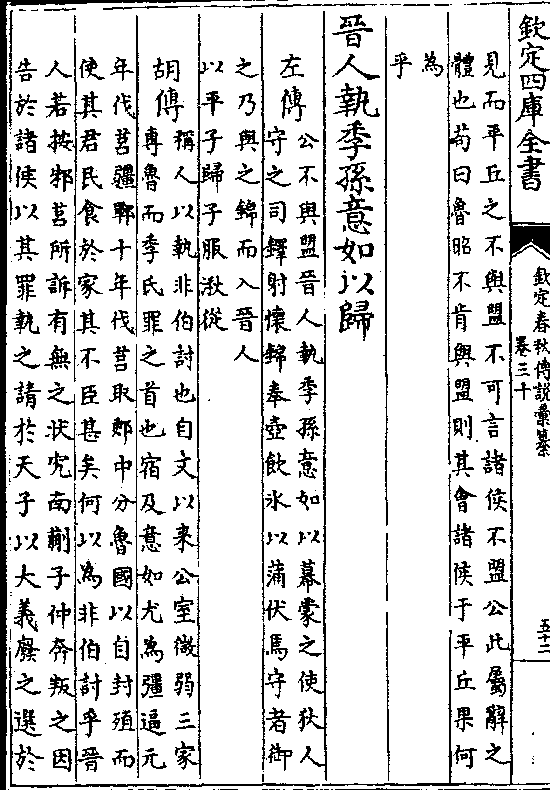 欽定四庫全書
欽定春秋傳說彙纂
卷三十
五十二
見而平丘之不與盟不可言諸侯不盟公此屬辭之
體也苟曰魯昭不肯與盟則其會諸侯于平丘果何
為
乎
晉人執季孫意如以歸
左傳
公不與盟晉人執季孫意如以幕蒙之使狄人
守之司鐸射懷錦奉壺飲冰以蒲伏焉守者御
之乃與之錦而入晉人
以平子歸子服湫從
胡傳
稱人以執非伯討也自文以來公室微弱三家
專魯而季氏罪之首也宿及意如尤為彊逼元
年伐莒疆鄆十年伐莒取郠中分魯國以自封殖而
使其君民食於家其不臣甚矣何以為非伯討乎晉
人若按邾莒所訴有無之狀究南蒯子仲奔叛之因
告於諸侯以其罪執之請於天子以大義廢之選於